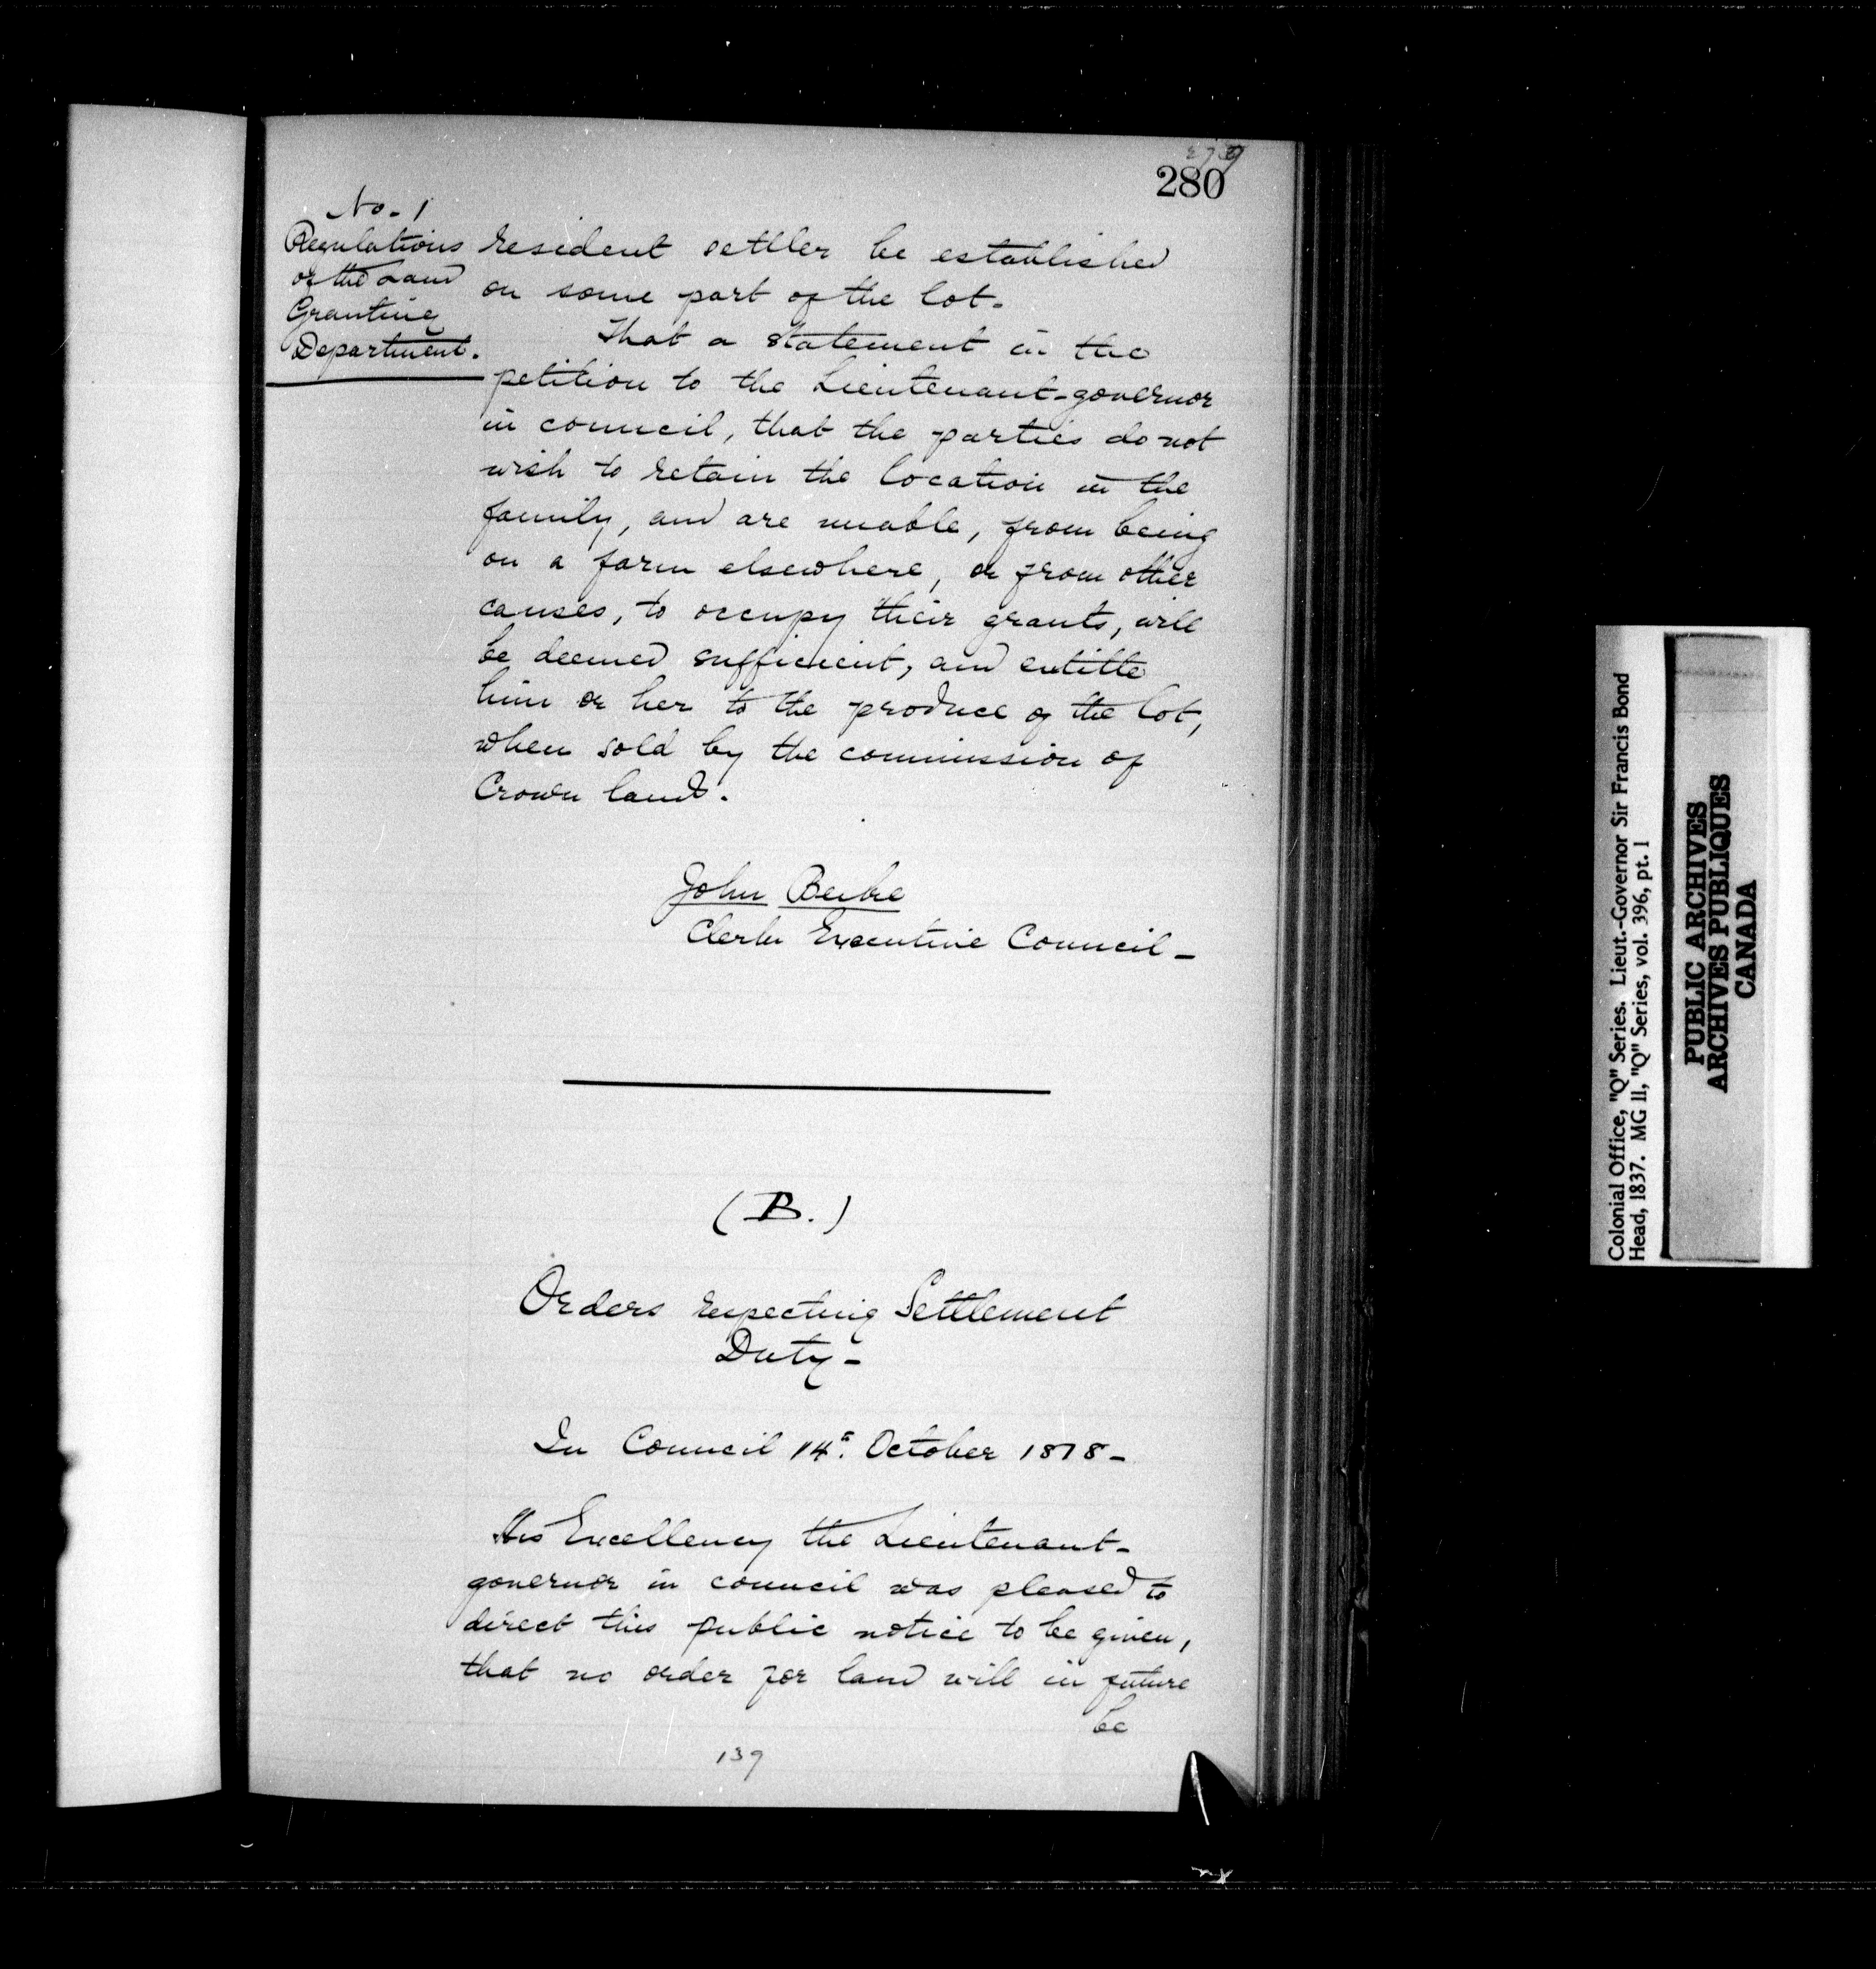 280
No. 1
Regulations
of the Land
Granting
Department.
resident settler be established
on some part of the lot.
That a statement in the
petition to the Lieutenant-governor
in council, that the parties do not
wish to retain the location in the
family, and are unable, from being
on a farm elsewhere, or from other
causes, to occupy their grants, will
be deemed sufficient, and entitle
him or her to the produce of the lot,
when sold by the commission of
Crown land.
John Beikie
Clerk Executive Council -
(B.)
Orders respecting Settlement
Duty -
In Council 14th. October 1818 -
His Excellency the Lieutenant-
governor in council was pleased to
direct this public notice to be given,
that no order for land will in future
be
139
Colonial Office, "Q" Series. Lieut.-Governor Sir Francis Bond
Head, 1837. MG 11, "Q" Series, vol. 396, pt. 1
PUBLIC ARCHIVES
ARCHIVES PUBLIQUES
CANADA